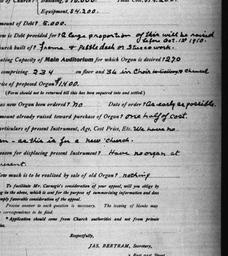 Equipment, $4,200.
Amount of Debt? 8,000.
is Debt Provided for? A large proportion of this will be raised
before Oct. 1st 1910.
Church built of? Frame + Pebble dash or Stucco work.
Seating Capacity of Main Auditorium for which Organ is desired? 270
comprising 234 on floor and 36 in Choir
price of proposed Organ? $1,400.
(Form should not be returned till this has been inquired into and settled.)
was new Organ been ordered? No Date of order? As early as possible.
amount already raised toward purchase of Organ? one half of cost.
particulars of present Instrument, Age, Cost Price, Etc. We have no
as this is for a new church.
reason for displacing present Instrument? Have no organ at
present.
How much is to be realized by sale of old Organ? nothing
To facilitate Mr. Carnegie's consideration of your appeal, will you oblige by
to the above, which is sent for the purpose of summarizing information and does
imply favorable consideration of the appeal.
Precise answer to each question is necessary. The issuing of blanks may
correspondence to be filed.
* Application should come from Church authorities and not from private
Respectfully,
JAS. BERTRAM, Secretary,